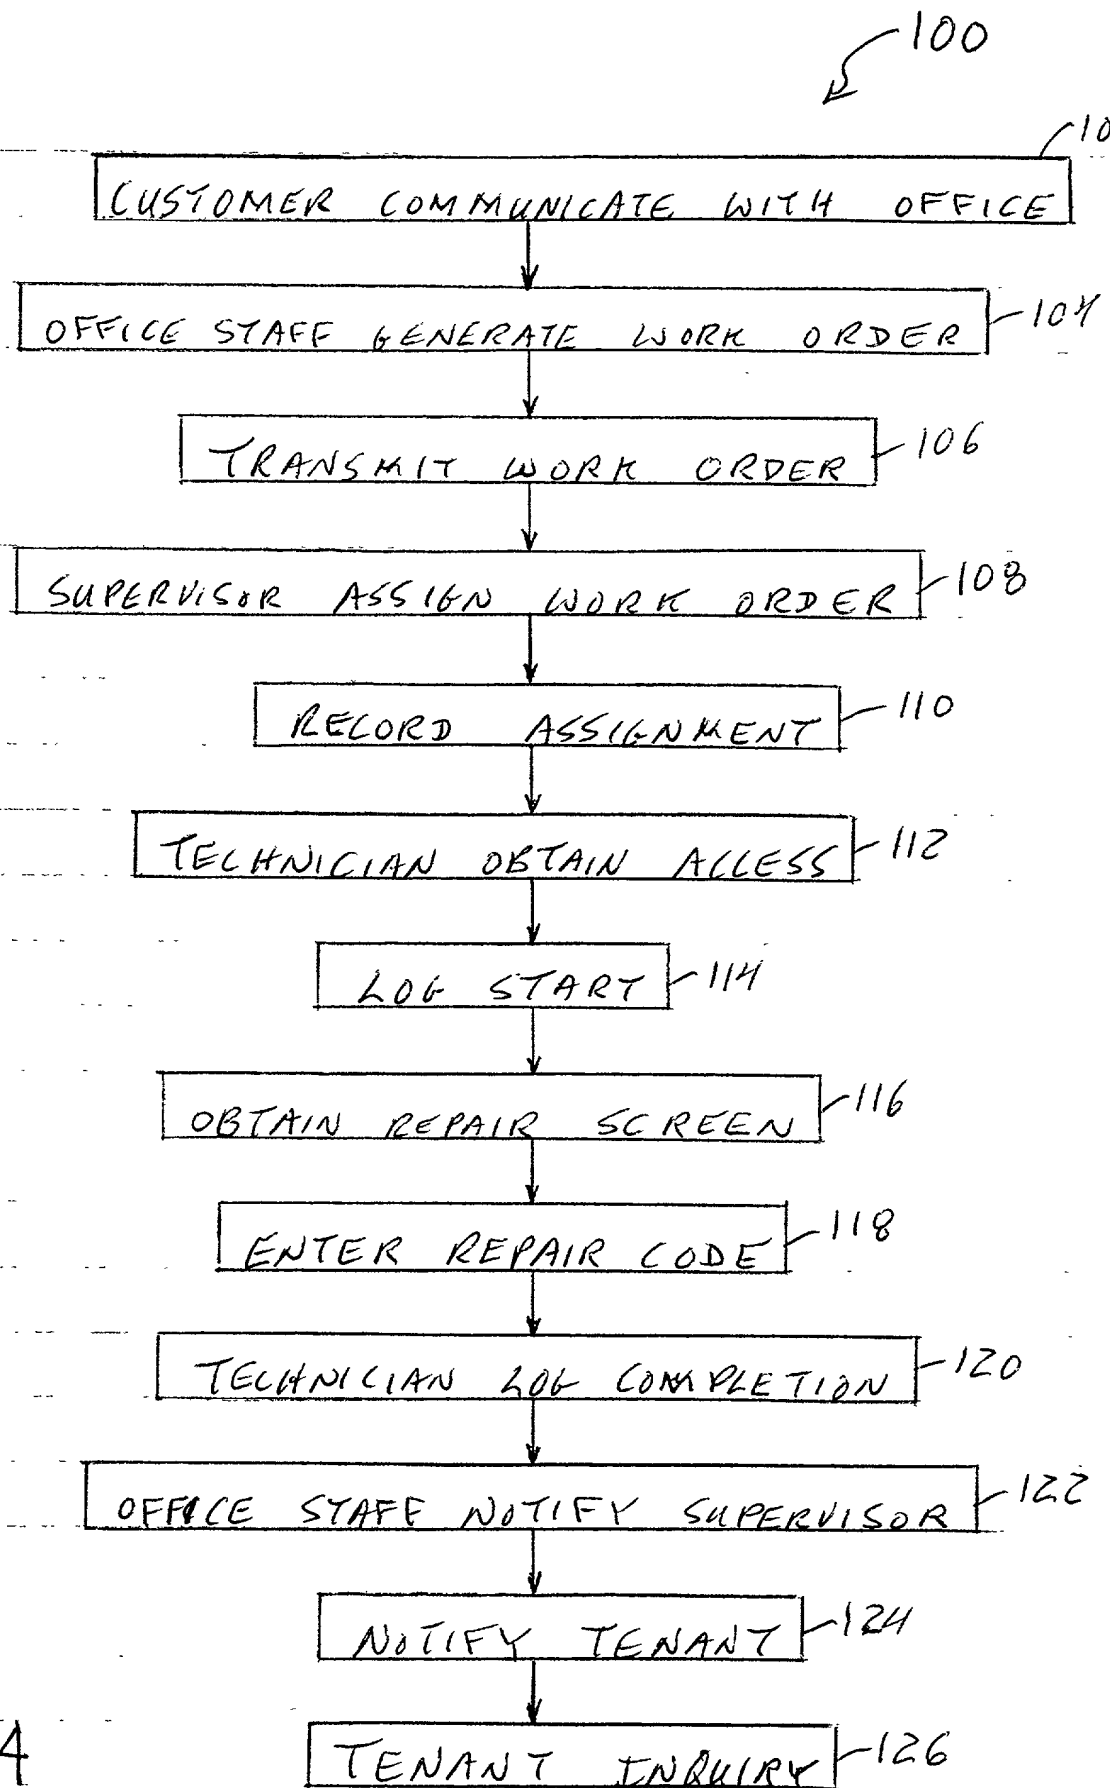 100
10
CUSTOMER COMMUNICATE WITH OFFICE
OFFICE STAFF GENERATE WORK ORDER
104
TRANSMIT WORK ORDER
106
SUPERVISOR ASSIGN WORK ORDER
108
RECORD ASSIGNMENT
110
TECHNICIAN OBTAIN ACCESS
112
LOG START
114
OBTAIN REPAIR SCREEN
116
ENTER REPAIR CODE
118
TECHNICIAN LOG COMPLETION
120
OFFICE STAFF NOTIFY SUPERVISOR
122
NOTIFY TENANT
124
TENANT INQUIRY
126
4